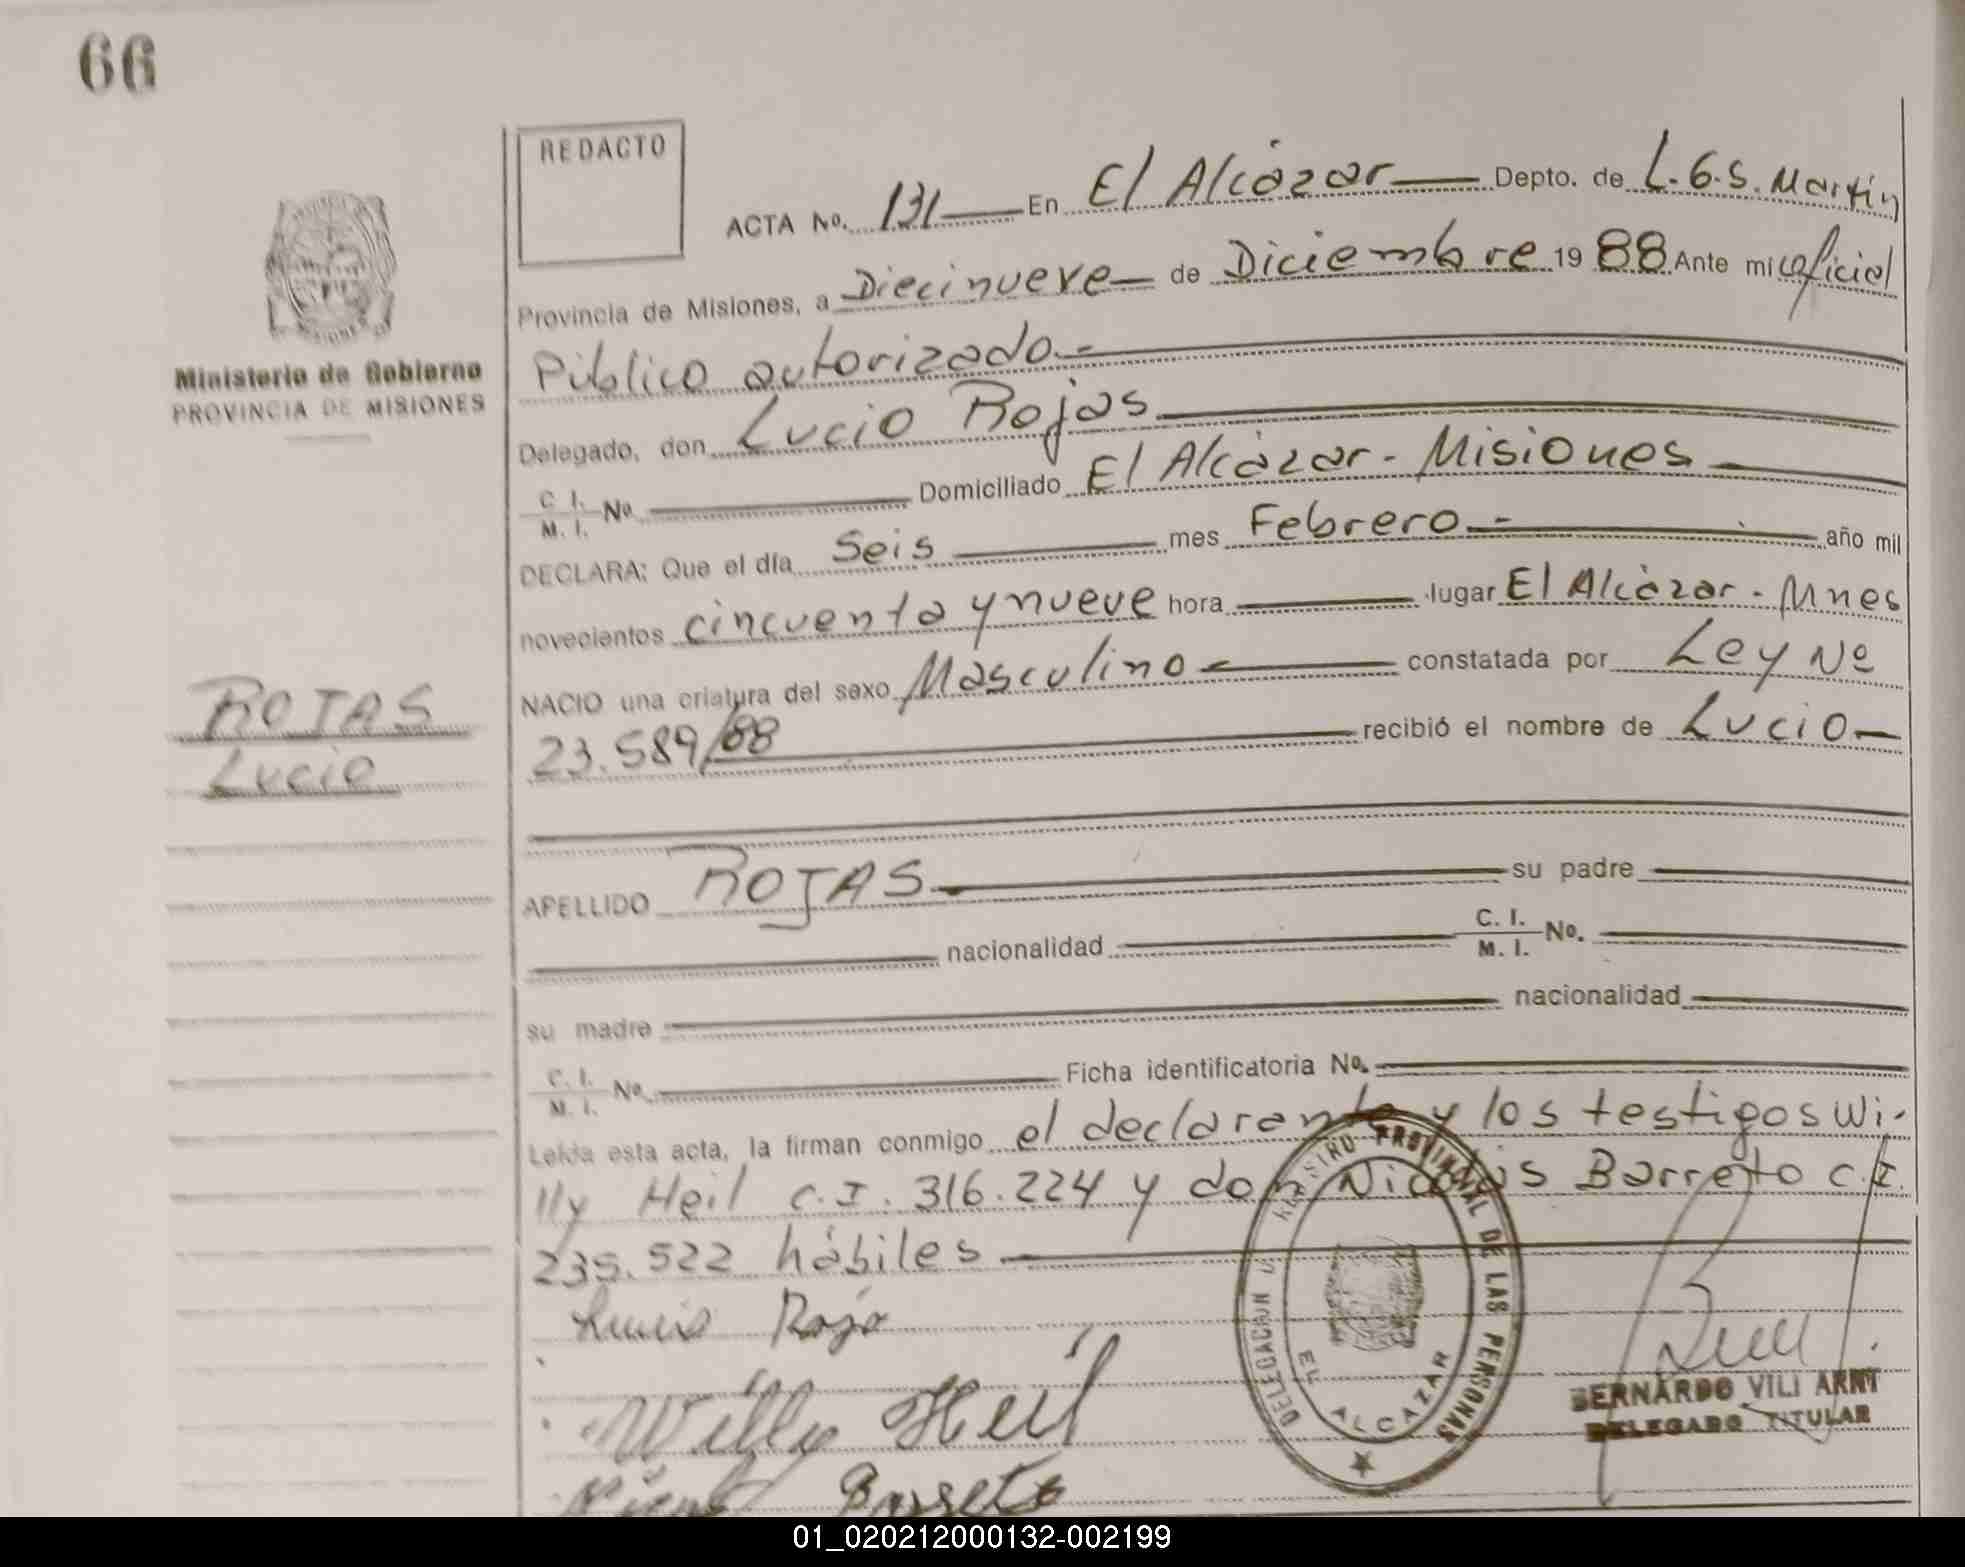 66
REDACTO
ACTA No. 131 En El Alcázar Depto. de L.G.S. Martín
Provincia de Misiones, a Diecinueve de Diciembre 1988 Ante mi oficial
Público autorizado.-
Ministerio de Gobierno
PROVINCIA DE MISIONES
Delegado, don Lucio Rojas
C. I. M. I. No. Domiciliado El Alcázar - Misiones
DECLARA: Que el día Seis mes Febrero.- año mil
novecientos cincuenta y nueve hora lugar El Alcázar - Mnes
NACIO una criatura del sexo Masculino constatada por Ley Nº
ROJAS
Lucio
23.589/88 recibió el nombre de Lucio
APELLIDO ROJAS su padre
nacionalidad C. I. M. I. No.
su madre nacionalidad
C. I. M. I. No. Ficha identificatoria No.
Leída esta acta, la firman conmigo el declarante y los testigos Wi-
lly Heil C.I. 316.224 y don Nicolás Barreto C.I.
235.522 hábiles
Lucio Roja
Willy Heil
Barreto
REGISTRO PROVINCIAL DE LAS PERSONAS
DELEGACION
EL ALCAZAR
BERNARDO VILI ARNT
DELEGADO TITULAR
01_020212000132-002199